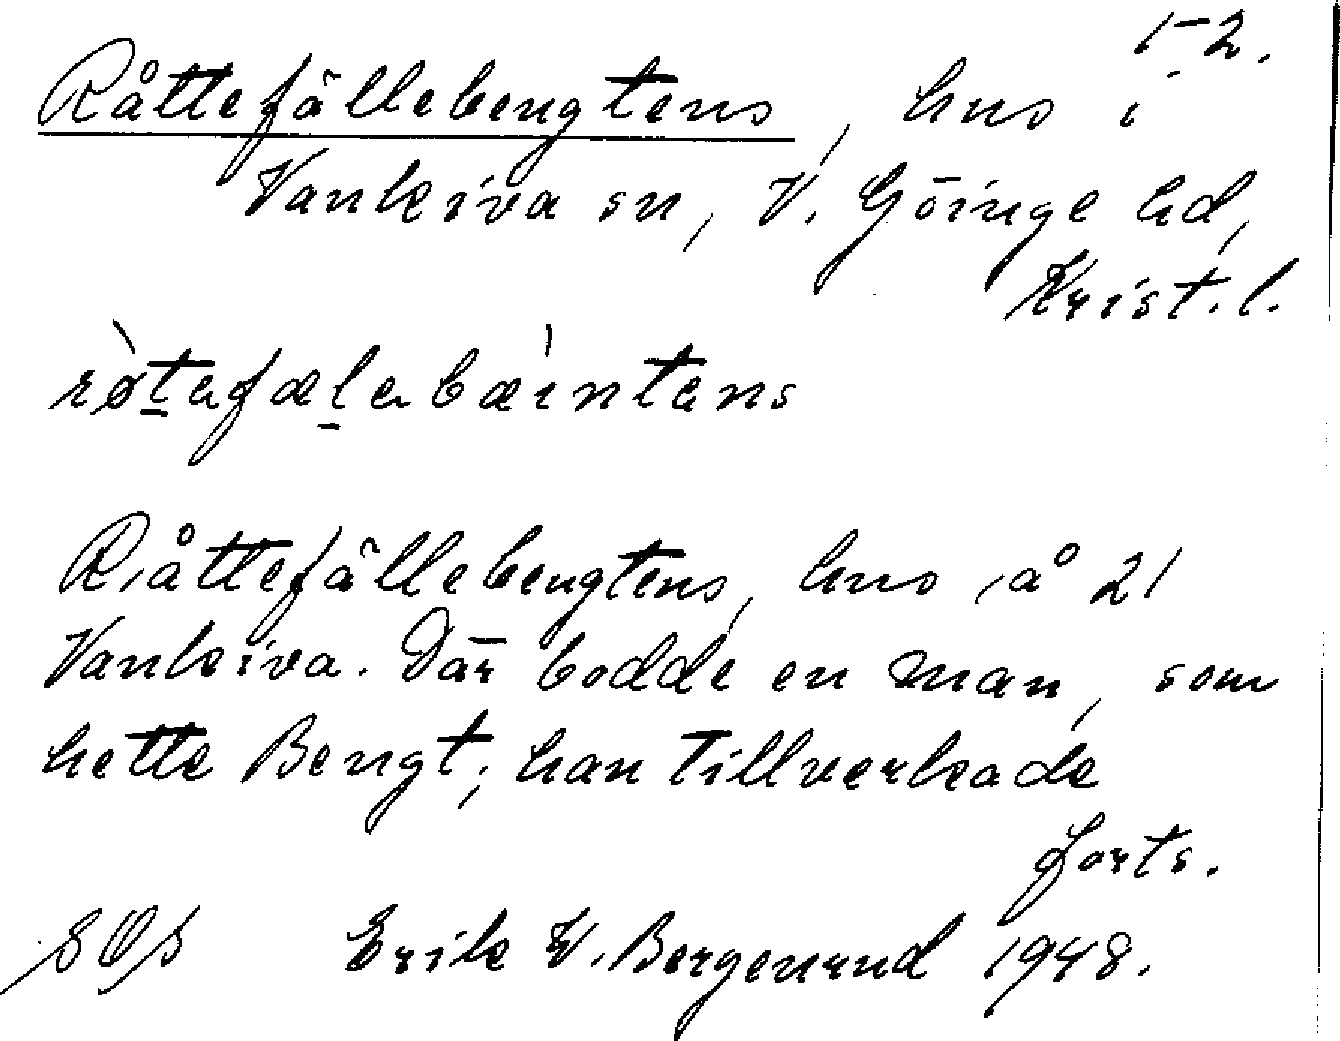 1-2.
Råttefällebengtens, hus i
Vankiva sn, V. Göinge hd,
Krist. l.
røtafælabæintans
Råttefällebengtens, hus, å 21
Vankiva. Där bodde en man, som
hette Bengt; han tillverkade
forts.
Erik W. Bergenrud 1948.